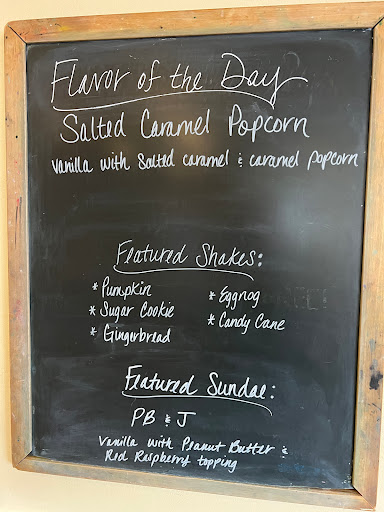 Flavor of the Day
Salted Caramel Popcorn
Vanilla with Salted caramel & caramel popcorn
Featured Shakes:
* Pumpkin
* Sugar Cookie
* Gingerbread
* Eggnog
* Candy Cane
Featured Sundae:
PB & J
Vanilla with Peanut Butter &
Red Raspberry topping